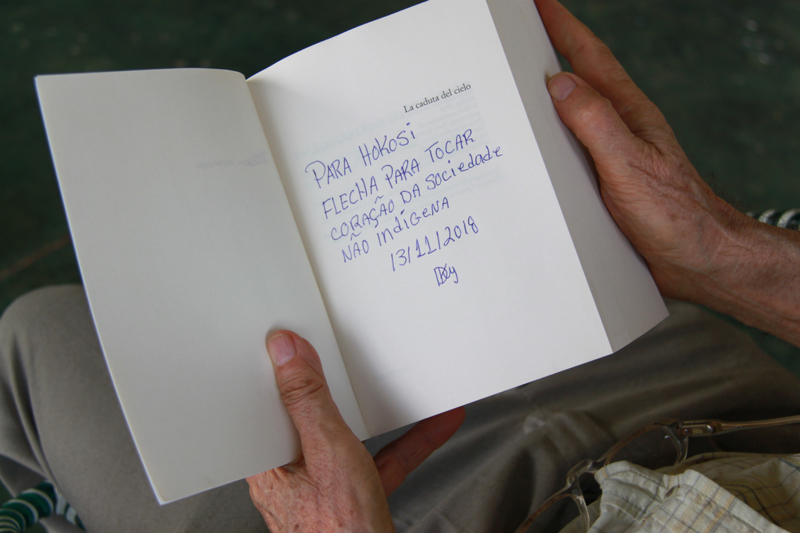 La caduta del cielo
PARA HOKOSI
FLECHA PARA TOCAR
CORAÇÃO DA SOCIEDADE
NÃO INDÍGENA
13/11/2018